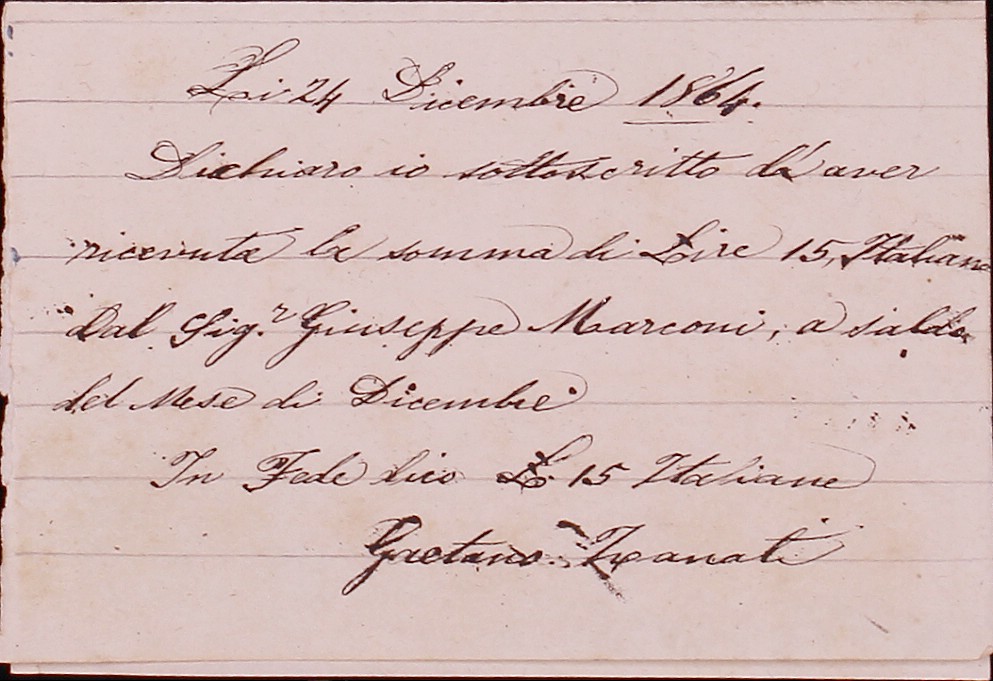 Li 24 Dicembre 1864.
Dichiaro io sottoscritto di aver
ricevuta la somma di Lire 15, Italiane
Dal Sig.r Giuseppe Marconi, a saldo
del Mese di Dicembre
In Fede dico L. 15 Italiane
Gaetano Zanati